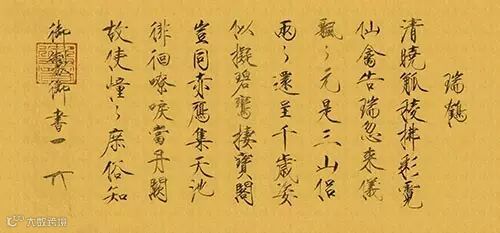 瑞鶴
清曉觚稜拂彩霓
仙禽告瑞忽來儀
飄々元是三山侶
兩々還呈千歲姿
似擬碧鸞棲寶閣
豈同赤鴈集天池
徘徊嘹唳當丹闕
故使憧々庶俗知
御製御書
大数跨境